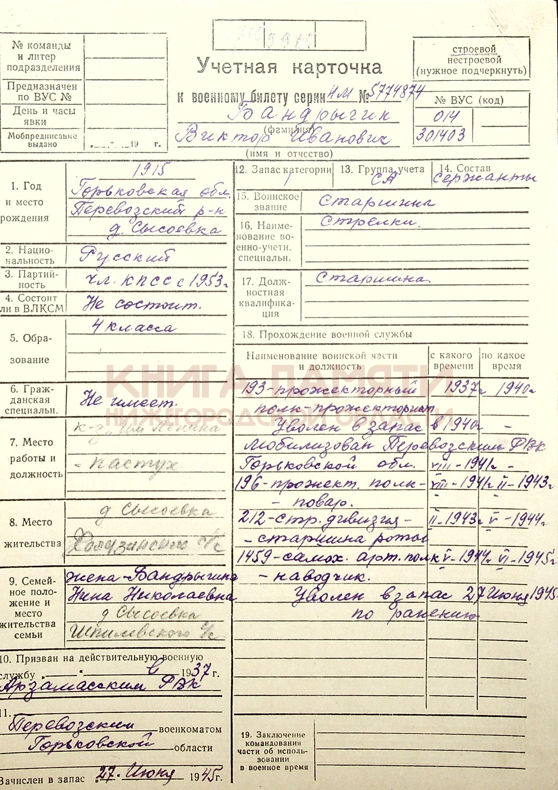 № команды
и литер
подразделения
Предназначен
по ВУС №
День и часы
явки
Мобпредписание
выдано 19 г.
Учетная карточка
к военному билету серии НМ № 5774874
Бандрыгин
(фамилия)
Виктор Иванович
(имя и отчество)
строевой
нестроевой
(нужное подчеркнуть)
№ ВУС (код)
014
301403
1. Год
и место
рождения
1915
Горьковская обл.
Перевозский р-н
д. Сысоевка
2. Нацио-
нальность
Русский
3. Партий-
ность
Чл. КПСС с 1953г
4. Состоит
ли в ВЛКСМ
Не состоит.
5. Обра-
зование
4 класса
6. Граж-
данская
специальн.
Не имеет.
7. Место
работы и
должность
к-з им Ленина
- пастух
8. Место
жительства
д Сысоевка
с/с
9. Семей-
ное поло-
жение и
место
жительства
семьи
жена-Бандрыгина
Нина Николаевна
д Сысоевка
Шпилевского с/с
10. Призван на действительную военную
службу 1937 г.
Арзамасским РВк
11.
Перевозским военкоматом
Горьковской области
Зачислен в запас 27. Июня 1945 г.
12. Запас категории
1
13. Группа учета
СА
14. Состав
Сержанты
15. Воинское
звание
Старшина
16. Наиме-
нование во-
енно-учетн.
специальн.
Стрелки.
17. Долж-
ностная
квалифика-
ция
Старшина.
18. Прохождение военной службы
Наименование воинской части
и должность
с какого
времени
по какое
время
193-прожекторный 1937г 1940г
полк-прожекторист
Уволен в запас в 1940г -
Мобилизован Перевозским РВк
Горьковской обл. VIII-1941г -
196-прожект. полк- VIII-1941г II-1943г
- повар.
212-стр. дивизия- II-1943г V-1944г
- старшина роты
1459-самох. арт. полк V-1944г VI-1945г
- наводчик.
Уволен в запас 27 Июня 1945
по ранению
19. Заключение
командования
части об исполь-
зовании
в военное время
КНИГА ПАМЯТИ
НИЖЕГОРОДСКОЙ ОБЛАСТИ